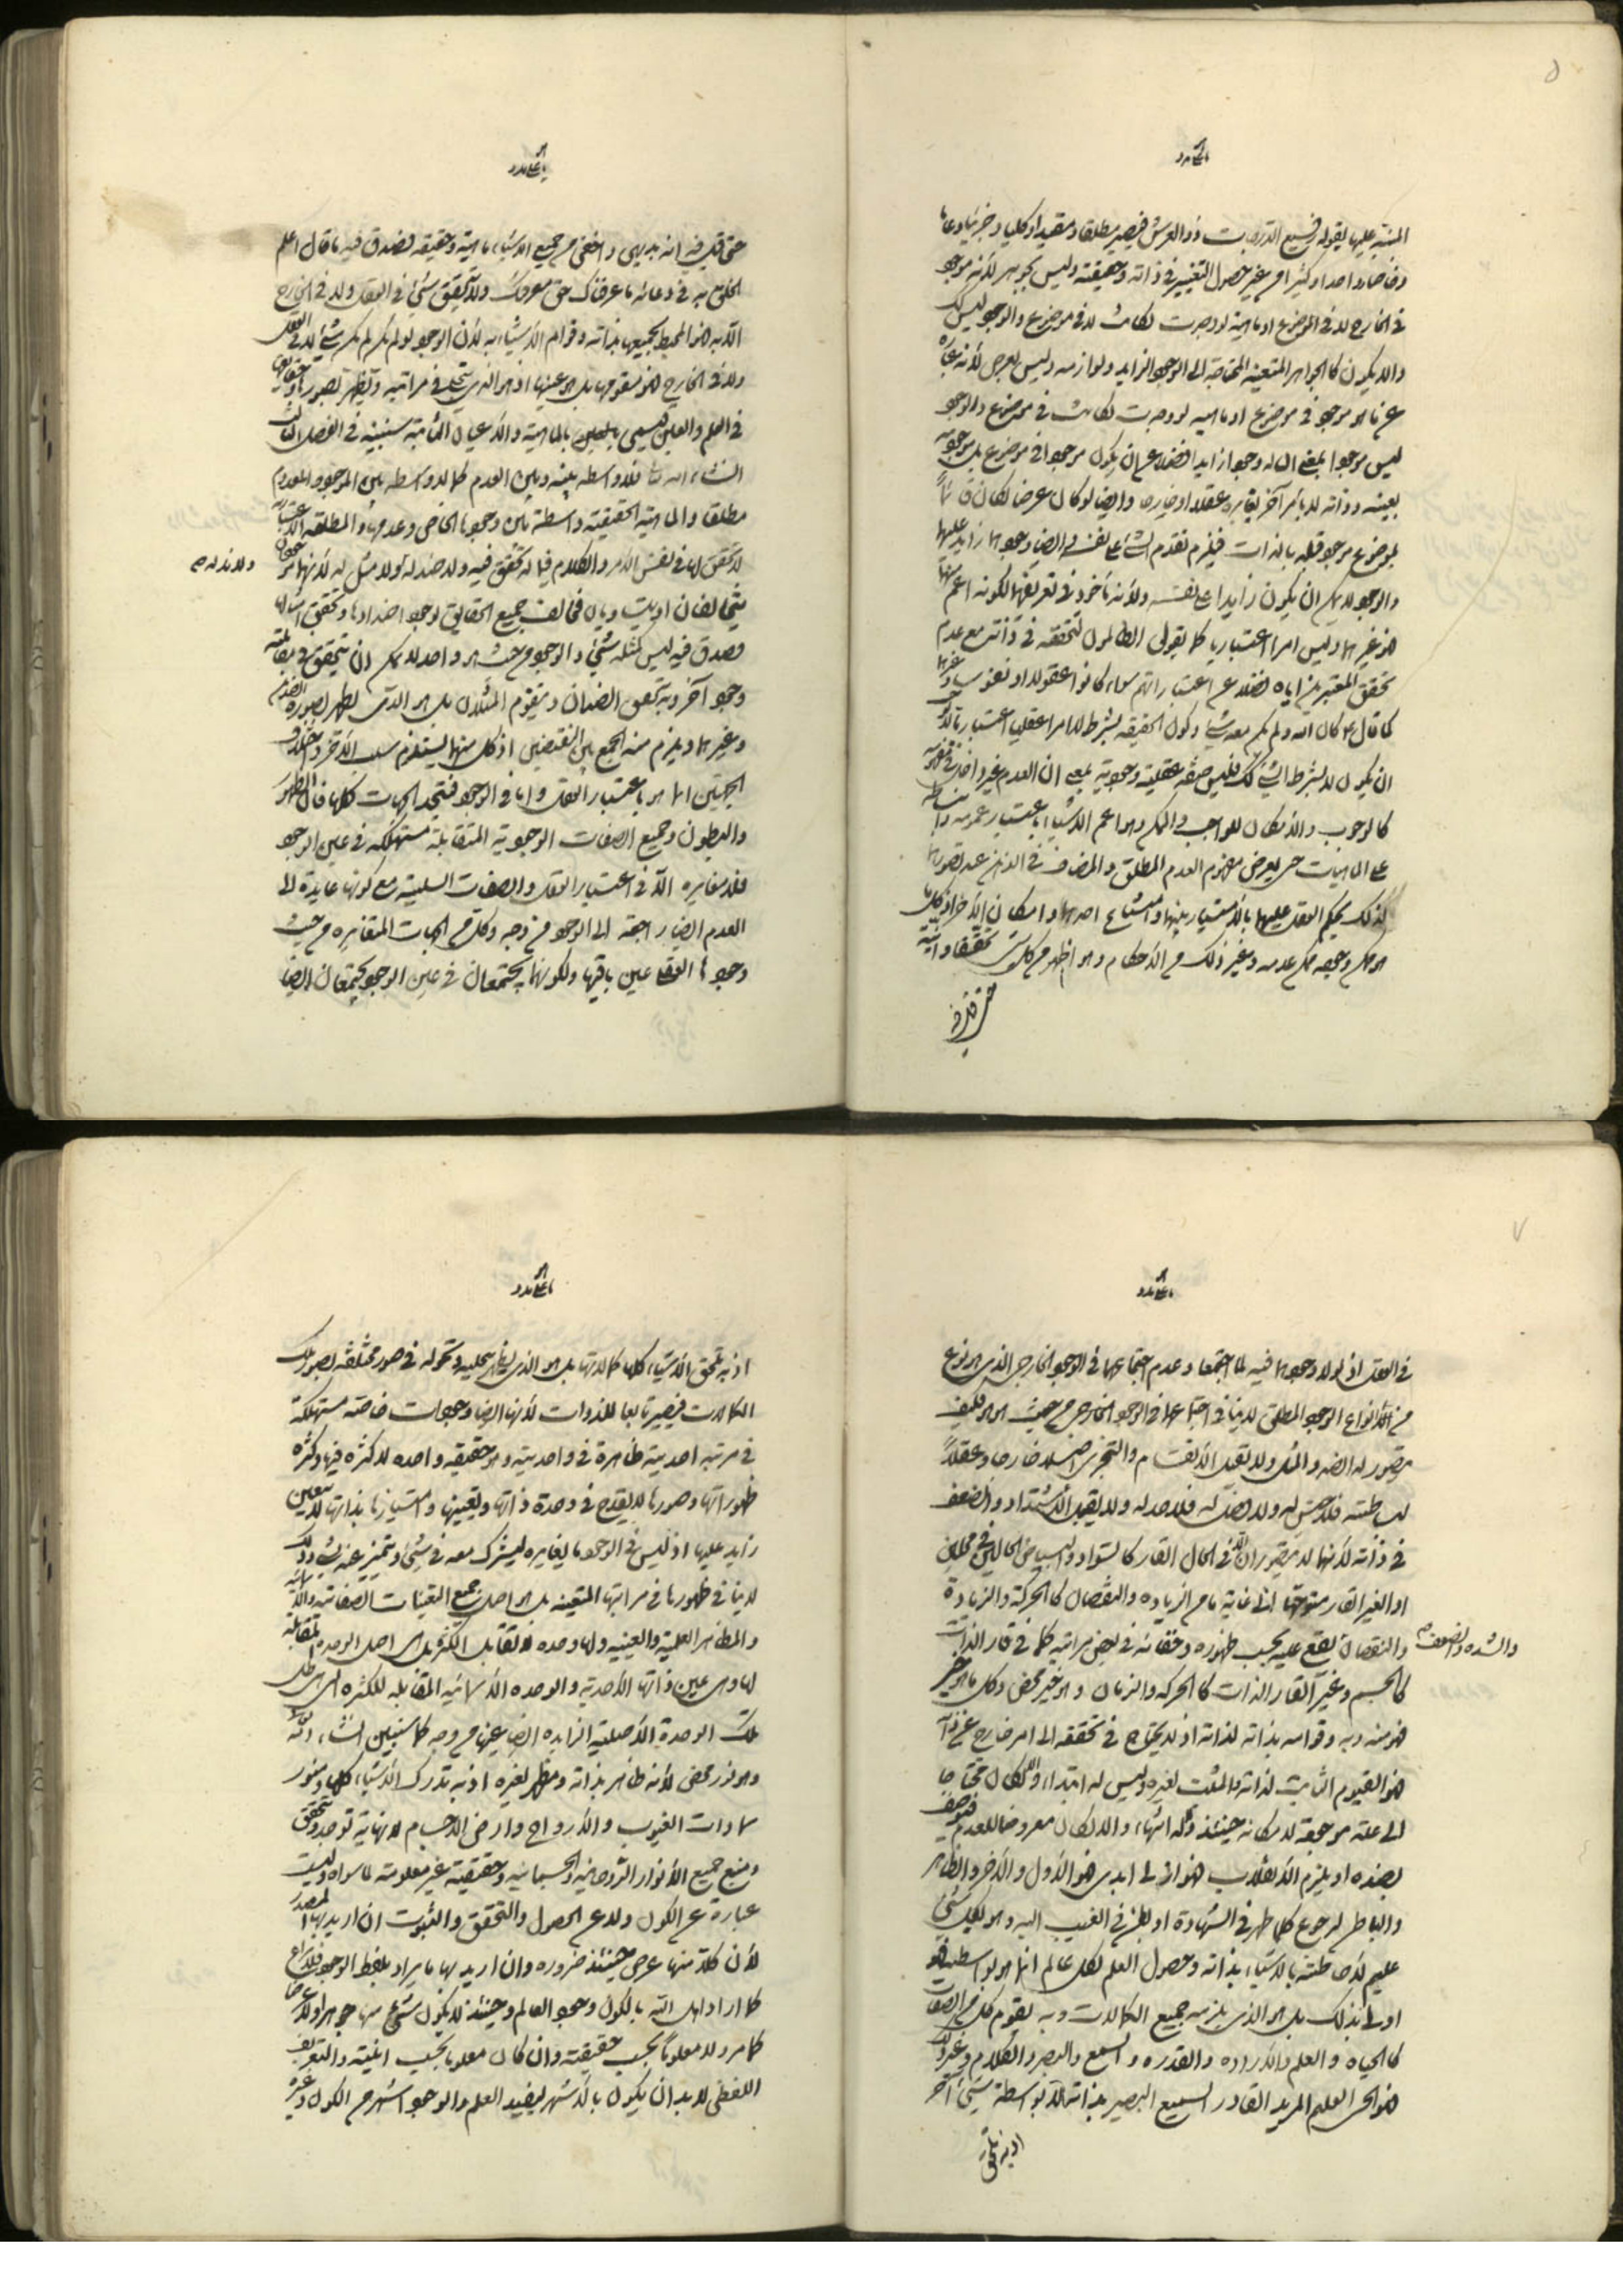 المنبه عليها بقوله رفيع الدرجات ذو العرش فيصير مطلقا ومقيدا وكليا وجزئيا وعاما
وخاصا وواحدا وكثيرا من غير حصول التغيير في ذاته وحقيقته وليس بجوهر لأنه موجود
في الخارج لا في الموضوع او ماهية لو وجدت لكانت لا في موضوع والوجود ليس كذلك
والا يكون كالجواهر المتعينة المحتاجة الى الوجود الزايد ولوازمه وليس بعرض لأنه عبارة
عن ما هو موجود في موضوع او ماهية لو وجدت لكانت في موضوع والوجود
ليس موجودا بمعنى ان له وجودا زايدا فضلا عن ان يكون موجودا في موضوع بل موجوديته
بعينه وذاته لا بامر آخر يغايره عقلا او خارجا وايضا لو كان عرضا لكان قائما
بموضوع موجود قبله بالذات فيلزم تقدم الشئ على نفسه وايضا وجودهما زايد عليهما
والوجود لا يمكن ان يكون زايدا على نفسه ولأنه مأخوذ في تعريفهما لكونه اعم منهما
فهو غيرهما وليس امرا اعتباريا كما يقول الظالمون لتحققه في ذاته مع عدم
تحقق المعتبرين اياه فضلا عن اعتباراتهم سواء كانوا عقولا او نفوسا وغيرهما
كما قال ع كان الله ولم يكن معه شئ وكون الحقيقة بشرط لا امرا عقليا اعتباريا لا يوجب
ان يكون لا بشرط الشئ كذلك فليس صفة عقلية وجودية بمعنى ان العدم غير داخل في مفهومه
كالوجوب والامكان للواجب والممكن وهو اعم الاشياء باعتبار عمومه وانبساطه
على الماهيات حتى يعرض مفهوم العدم المطلق والمضاف في الذهن عند تصورهما
لذلك يحكم العقل عليهما بالامتياز بينهما وامتناع احدهما وامكان الآخر اذ كل ما
هو ممكن وجوده ممكن عدمه وغير ذلك من الأحكام وهو اظهر من كل شئ تحققا وانية
حتى قيل فيه
حتى قيل فيه انه بديهي واخفى من جميع الاشياء ماهية وحقيقة فصدق فيه ما قال اعلم
الخلق به في دعائه ما عرفناك حق معرفتك ولا يتحقق شئ في العقل ولا في الخارج
الا به فهو المحيط بجميعها بذاته وقوام الأشياء به لأن الوجود لو لم يكن لم يكن شئ لا في العقل
ولا في الخارج فهو مقومها بل هو عينها اذ هو الذي يتجلى في مراتبه ويظهر بصورها وحقايقها
في العلم والعين فيسمى بالماهية والاعيان الثابتة كما سنبينه في الفصل الثالث
انشاء الله تعالى فلا واسطة بينه وبين العدم كما لا واسطة بين الموجود والمعدوم
مطلقا والماهية الحقيقية واسطة بين وجودها الخاص وعدمها والمطلقة الاعتبارية
لا تحقق لها في نفس الأمر والكلام فيما له تحقق فيه ولا ضد له ولا مثل له لأنهما موجودان
متخالفان او متساويان فخالف جميع الحقايق لوجود اضدادها وتحقق امثالها
وصدق فيه ليس كمثله شئ والوجود من حيث هو واحد لا يمكن ان يتحقق في مقابلته
وجود آخر وبه يتحقق الضدان ويتقوم المثلان بل هو الذي يظهر بصورة الضدين
وغيرهما ويلزم منه الجمع بين النقيضين اذ كل منهما يستلزم سلب الآخر واختلاف
الجهتين انما هو باعتبار العقل واما في الوجود فتتحد الجهات كلها فان الظهور
والبطون وجميع الصفات الوجودية المتقابلة مستهلكة في عين الوجود
فلا مغايرة الا في اعتبار العقل والصفات السلبية مع كونها عايدة الى
العدم ايضا راجعة الى الوجود من وجه وكل من الجهات المتغايرة من حيث
وجودها العقلي عين باقيها ولكونهما يجتمعان في عين الوجود يجتمعان ايضا
ولا ند له صح
في العقل اذ لولا وجودهما فيه لما اجتمعا وعدم اجتماعهما في الوجود الخارجي الذي هو نوع
من الأنواع الوجود المطلق لا ينافي اجتماعهما في الوجود الخارجي من حيث هو هو فكيف
يتصور له الضد والمثل ولا يقبل الانقسام والتجزي اصلا خارجا وعقلاً
لبساطته فلا جنس له ولا فصل له فلا حد له ولا يقبل الاشتداد والضعف
في ذاته لأنهما لا يتصوران الا في الحال القار كالسواد والبياض الحالين في محلين
او الغير القار متوجها الى غاية ما من الزيادة والنقصان كالحركة والزيادة
والنقصان يقع عليه بحسب ظهوره وخفائه في بعض مراتبه كما في قار الذات
والشدة والضعف صح
كالجسم وغير القار الذات كالحركة والزمان وهو خير محض وكل ما هو خير
فهو منه وبه وقوامه بذاته لذاته اذ لا يحتاج في تحققه الى امر خارج عن ذاته
فهو القيوم الثابت لذاته والمثبت لغيره وليس له ابتداء والا لكان محتاجا
الى علة موجدة لامكانه حينئذ وله انتهاء والا لكان معروضا للعدم فيوصف
بضده او يلزم الانقلاب فهو ازلي ابدي فهو الأول والآخر والظاهر
والباطن لرجوع كلما ظهر في الشهادة او بطن في الغيب اليه وهو بكل شئ
عليم لأحاطته بالاشياء بذاته وحصول العلم لكل عالم انما هو بواسطته فهو
اولى بذلك بل هو الذي يلزمه جميع الكمالات وبه تقوم كل من الصفات
كالحياة والعلم والارادة والقدرة والسمع والبصر والكلام وغير ذلك
فهو الحي العليم المريد القادر السميع البصير بذاته لا بواسطة شئ آخر
اذ به تلحق
اذ به تلحق الأشياء كلها كمالاتها بل هو الذي يظهر بتجليه وتحوله في صور مختلفة بصور تلك
الكمالات فيصير تابعا للذوات لأنها ايضا وجودات خاصة مستهلكة
في مرتبة احديته ظاهرة في واحديته وهو حقيقة واحدة لا كثرة فيها وكثرة
ظهوراتها وصورها لا يقدح في وحدة ذاتها وتعينها وامتيازها بذاتها لا بتعين
زايد عليها اذ ليس في الوجود ما يغايره ليشترك معه في شئ ويتميز عنه بشئ وذلك
لا ينافي ظهورها في مراتبها المتعينة بل هو اصل جميع التعينات الصفاتية والاسمائية
والمظاهر العلمية والعينية ولها وحدة لا تقابل الكثرة بل هي اصل الوحدة المقابلة
لها وهي عين ذاتها الأحدية والوحدة الأسمائية المقابلة للكثرة التي هي ظل
تلك الوحدة الأصلية الزايدة ايضا عينها من وجه كما سنبين انشاء الله تعالى
وهو نور محض لأنه ظاهر بذاته ومظهر لغيره اذ به تدرك الاشياء كلها ومنور
سماوات الغيوب والارواح وارض الاجسام لانها به توجد وتتحقق
ومنبع جميع الأنوار الروحانية والجسمانية وحقيقته غير معلومة لما سواه وليست
عبارة عن الكون ولا عن الحصول والتحقق والثبوت ان اريد بها المصدر
لأن كلا منها عرض حينئذ ضرورة وان اريد بها ما يراد بلفظ الوجود فلا نزاع
كما اراد اهل الله بالكون وجود العالم وحينئذ لا يكون شئ منها جوهرا ولا عرضا
كما مر ولا معلوماً بحسب حقيقته وان كان معلوما بحسب انيته والتعريف
اللفظي لا بد ان يكون بالأشهر ليفيد العلم والوجود اشهر من الكون وغيره